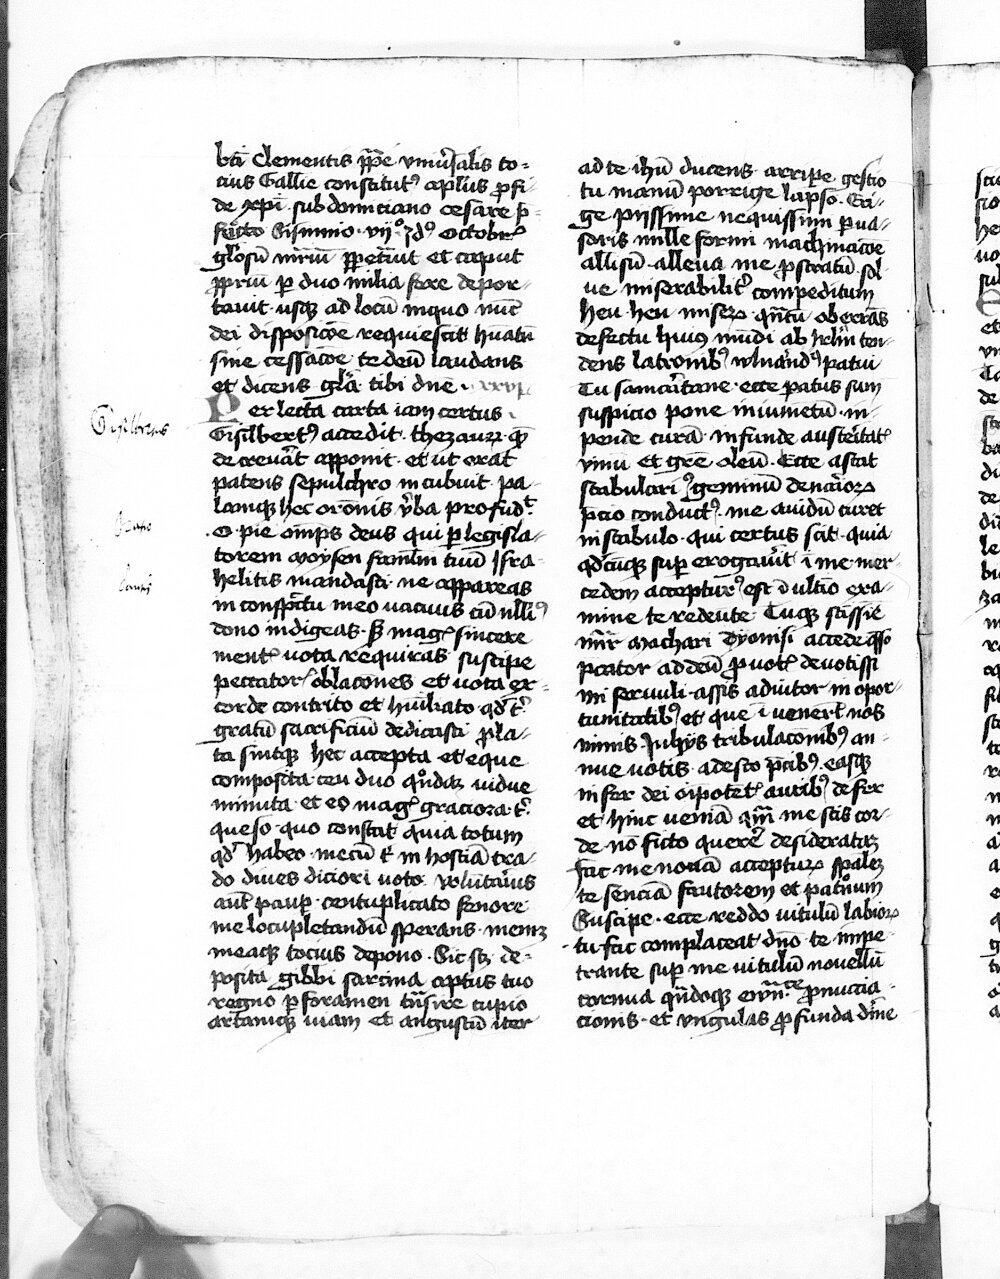 bti Clementis ppe vniūsalis to-
cius Gallie constitut9 aplūs p fi-
de xpi sub domiciano cesare p-
fecto Sisinnio vij° ydus Octobr
gl'osū mriū ppetūit et caput
ppriū p duo milia fere depor-
tauit usq ad locū inquo nūc
dei disposicōe requiescit hūatū
sine cessacōe te deū laudans
et dicens gl'a tibi dne
Per lecta carta iam certus
Gisilbertus accedit thezaurū q
decreuāt apponit et ut erat
patens sepulchro incubuit pa-
lamq hec orōnis v'ba profudt
O pie omps deus qui p legisla-
torem moysen famlm tuū Isra-
helitis mandasti ne appareas
in conspctu meo vacuus cū nulli9
dono indigeas sz mag' sincere
ment' uota requiras suscipe
peccator' oblacones et uota ex
corde contrito et hūiliato qd t'
gratū sacrificiū dedicasti pla-
ta sintq hec accepta et eque
composita ceu duo q'ndaz vidue
minuta et eo mag' graciora t'
queso quo constat quia totum
qd habeo mecū t' in hostiā tra-
do diues diciori uoto volūtarius
aut paup centuplicato fenore
me locupletandū sperans memz
meaq tocius depono Sic sz de-
posita gibbi sarcina aptus tuo
regno p foramen trāsire cupio
artamq uiam et angustū iter
ad te ihū ducens arripe gestio
tu manū porrige lapso Eri-
ge piissime nequissimi p ua-
soris mille formi machinacōe
allisū alleua me pstratū sol
ue miserabilit' compeditum
heu heu miser qntū oberras
defectu huius mūdi ab hrlm ten-
dens latronib9 uln'and9 patui
Tu samaritane ecce patus sum
suspicio pone in iumetū im-
pende curā infunde austeritat'
vini et gre oleū Ecce astat
stabulari9 geminū denariorꝝ
pcio conduct9 me auidū curet
in stabulo qui certus scit quia
qdcūq sup erogauit i me mer-
cedem accepturus est i ultio exa-
mine te redeūte Tuq scissie
mr machari Dyonisi accede qso
pcator ad deū p uot' deuotissi
mi seruuli assis adiutor in opor-
tunitatib9 et que i uener't nos
nimis Inhijs tribulaconib9 an-
nue uotis adesto pcib9 easq
infer dei oipotet' aurib9 defer
et hinc veniā qm me scis cor-
de nō ficto querer' desideratā
fac me nouā accepturꝝ spalez
te senciā fautorem et patnum
Suscipe ecce reddo uitulū labiorꝝ
tu fac complaceat dno te impe-
trante sup me uitulū nouellū
cornua qndoq pnuncia-
cionis et ungulas pfunda dine
Gisilbertus
Oratio